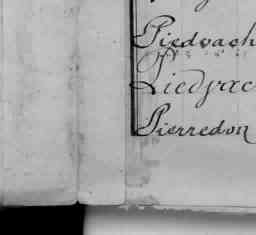 Piedvach
Piedvac
Pierredon